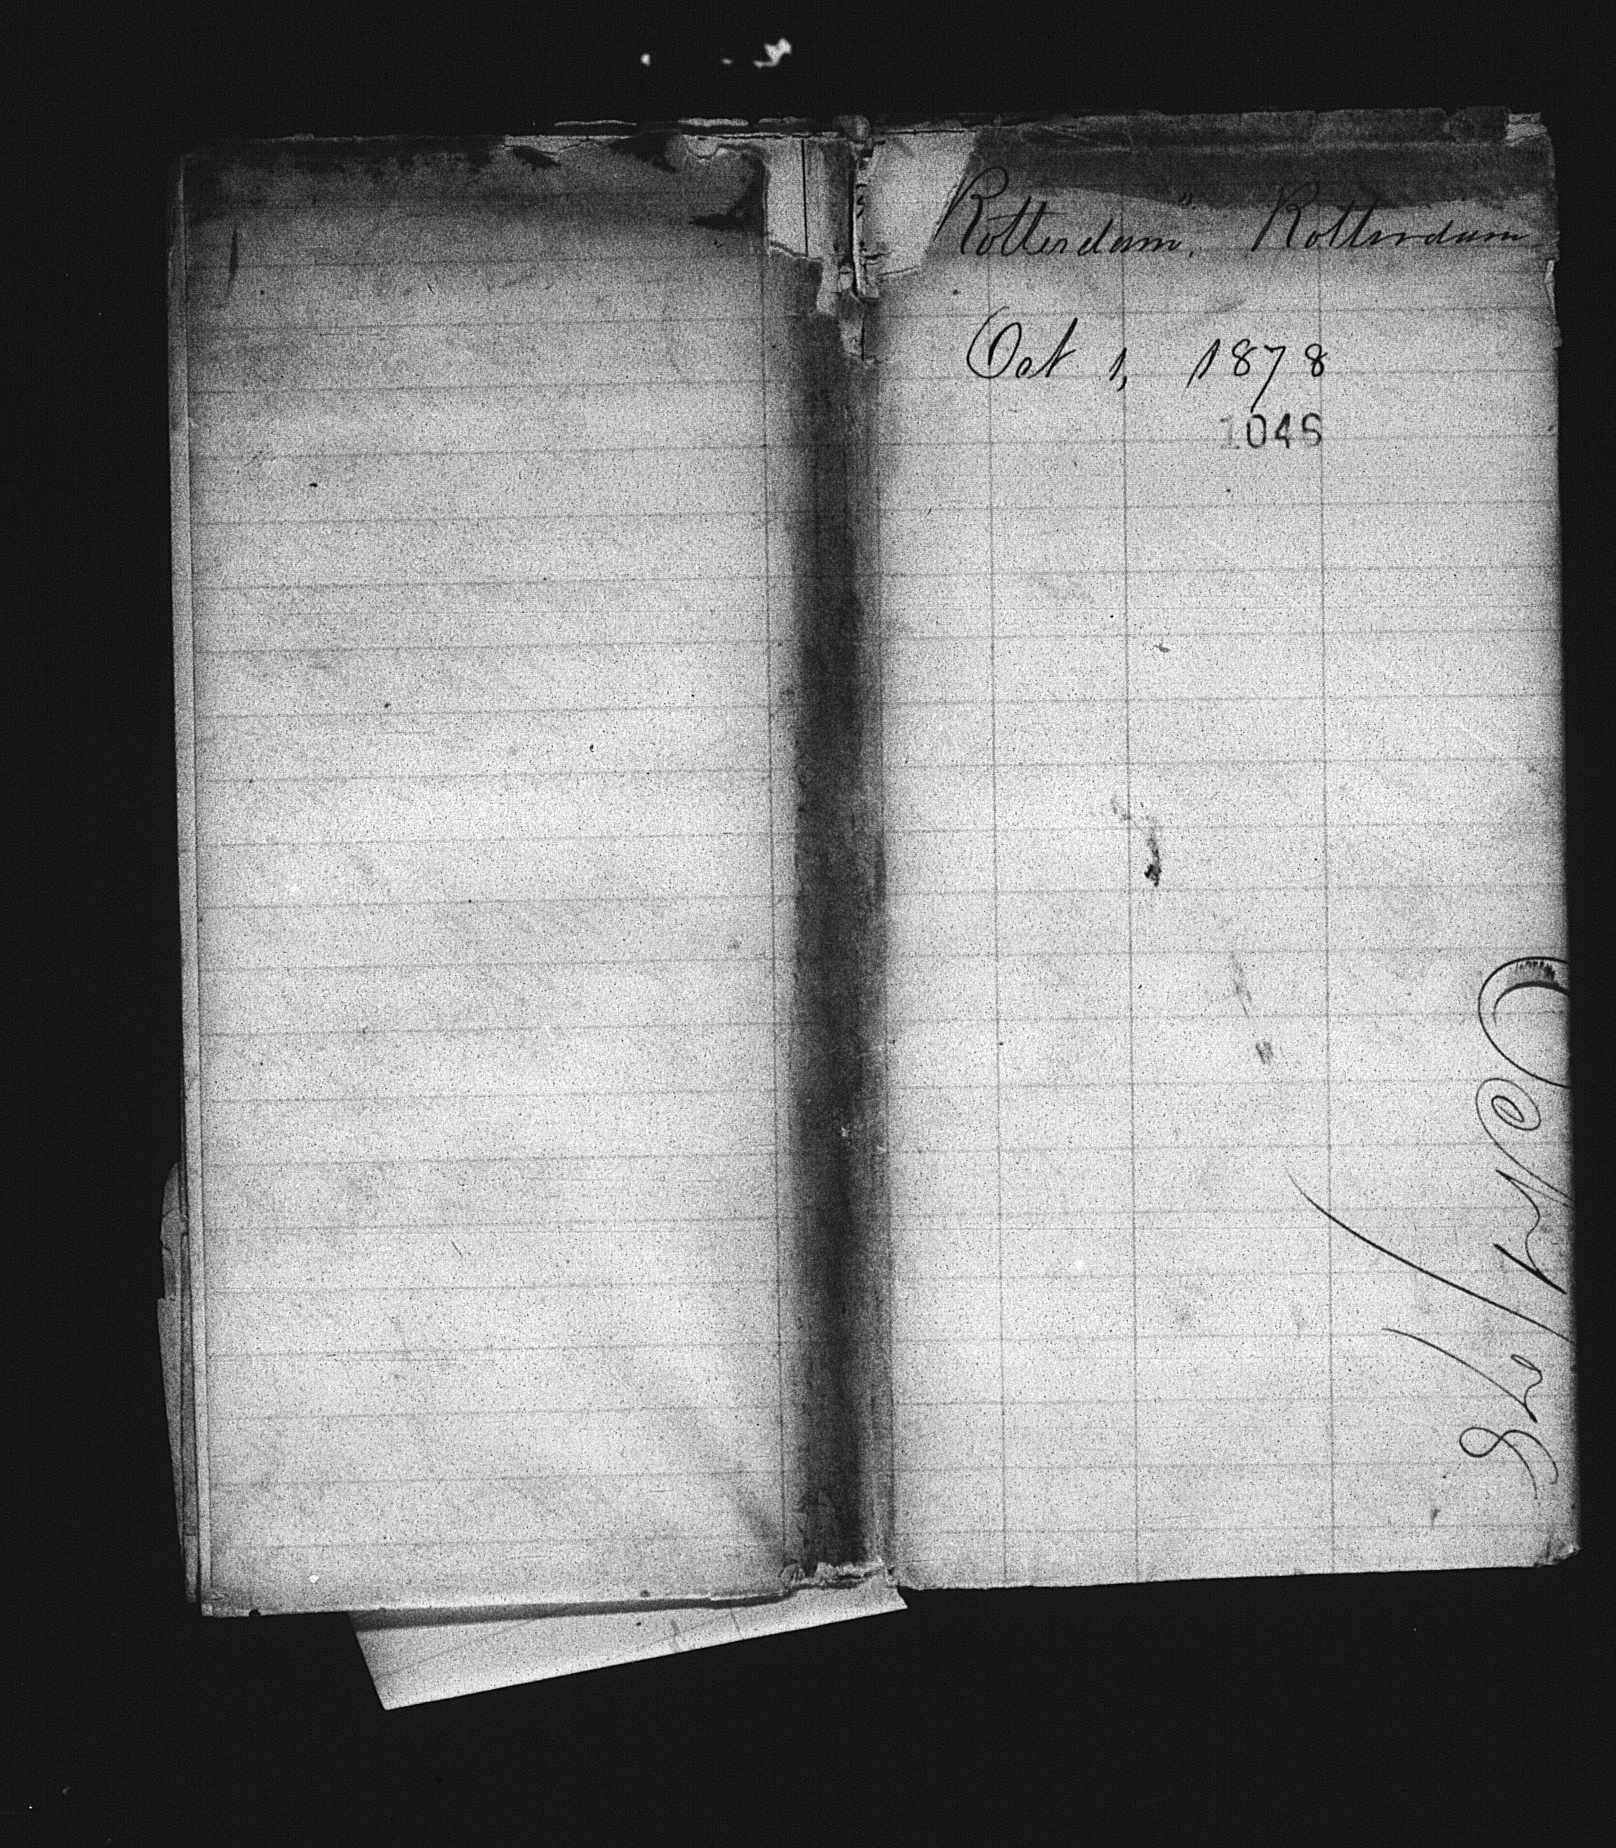 Rotterdam", Rotterdam
Oct 1, 1878
1046
Oct 1/78